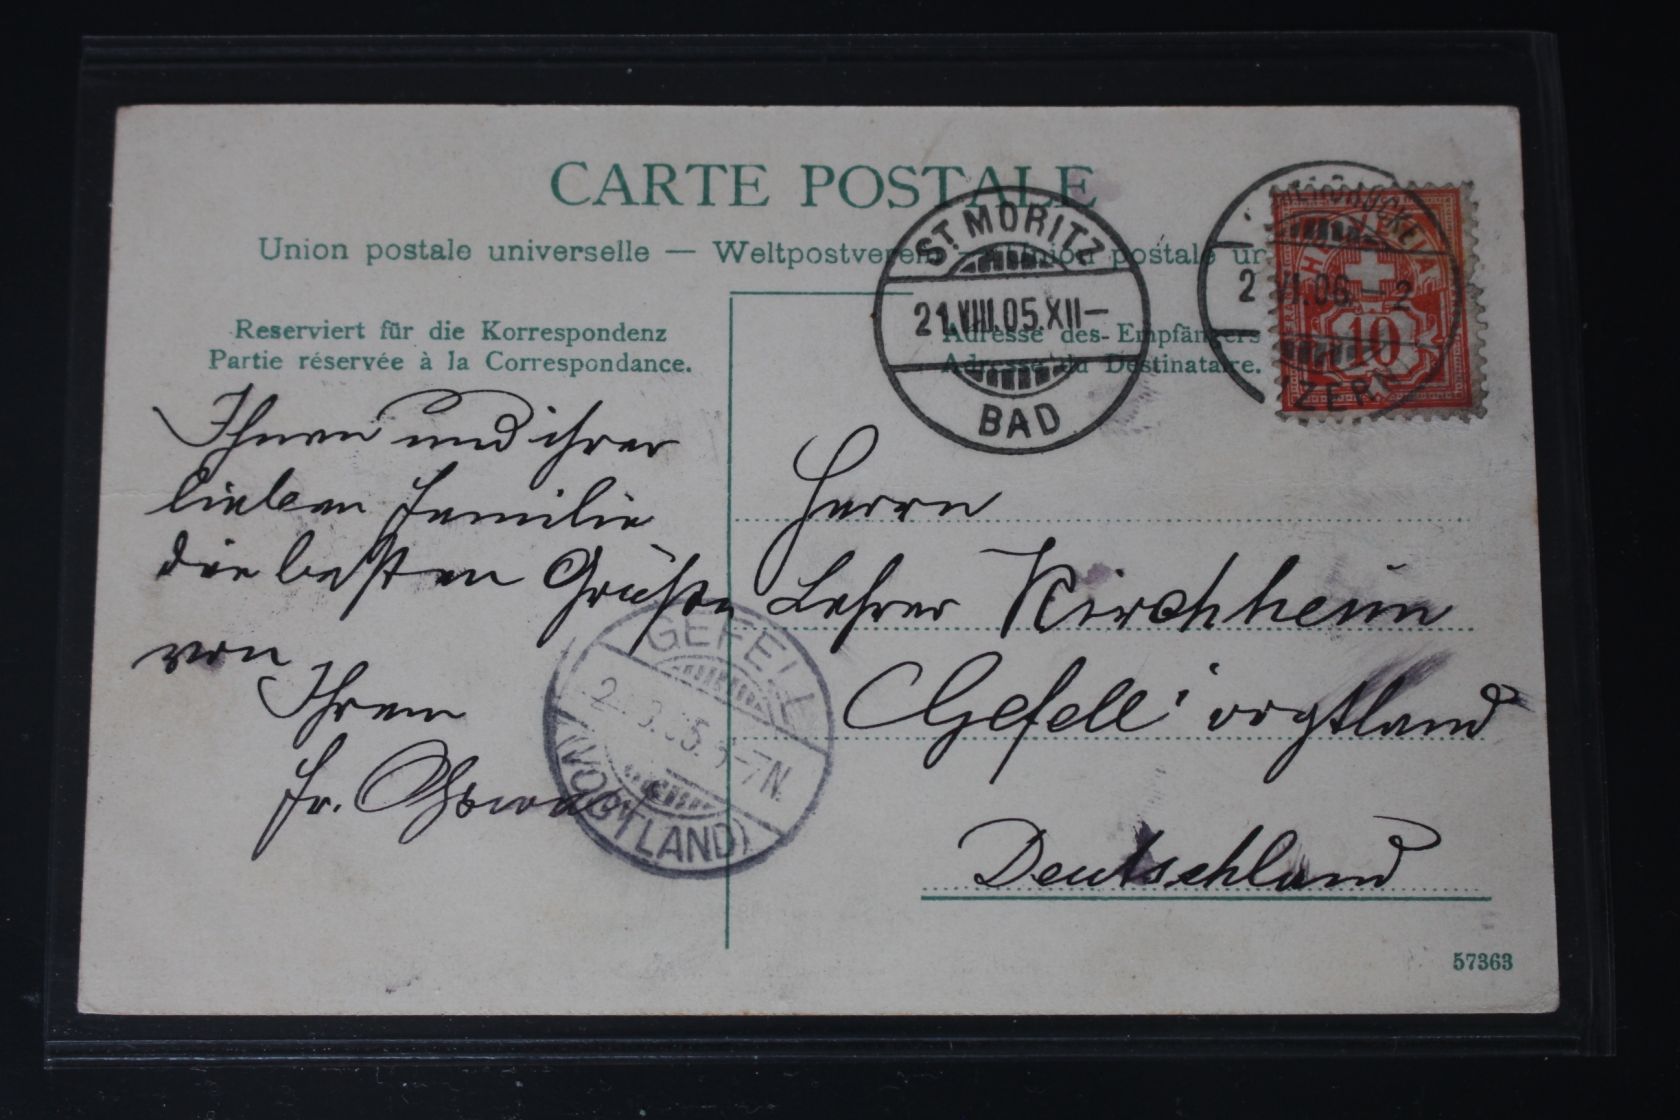 CARTE POSTALE
Union postale universelle — Weltpostverein — Union postale un
Reserviert für die Korrespondenz
Partie réservée à la Correspondance.
Adresse des Empfängers
Adresse du Destinataire.
ST MORITZ
21.VIII.05.XII–
BAD
VI.06.–2
10
ZERN
Ihnen und ihrer
lieben Familie
die besten Grüße
von
Ihrem
fr.
Herrn
Lehrer Kirchheim
Gefell i vogtland
Deutschland
GEFELL
–7N.
(VOGTLAND)
57363